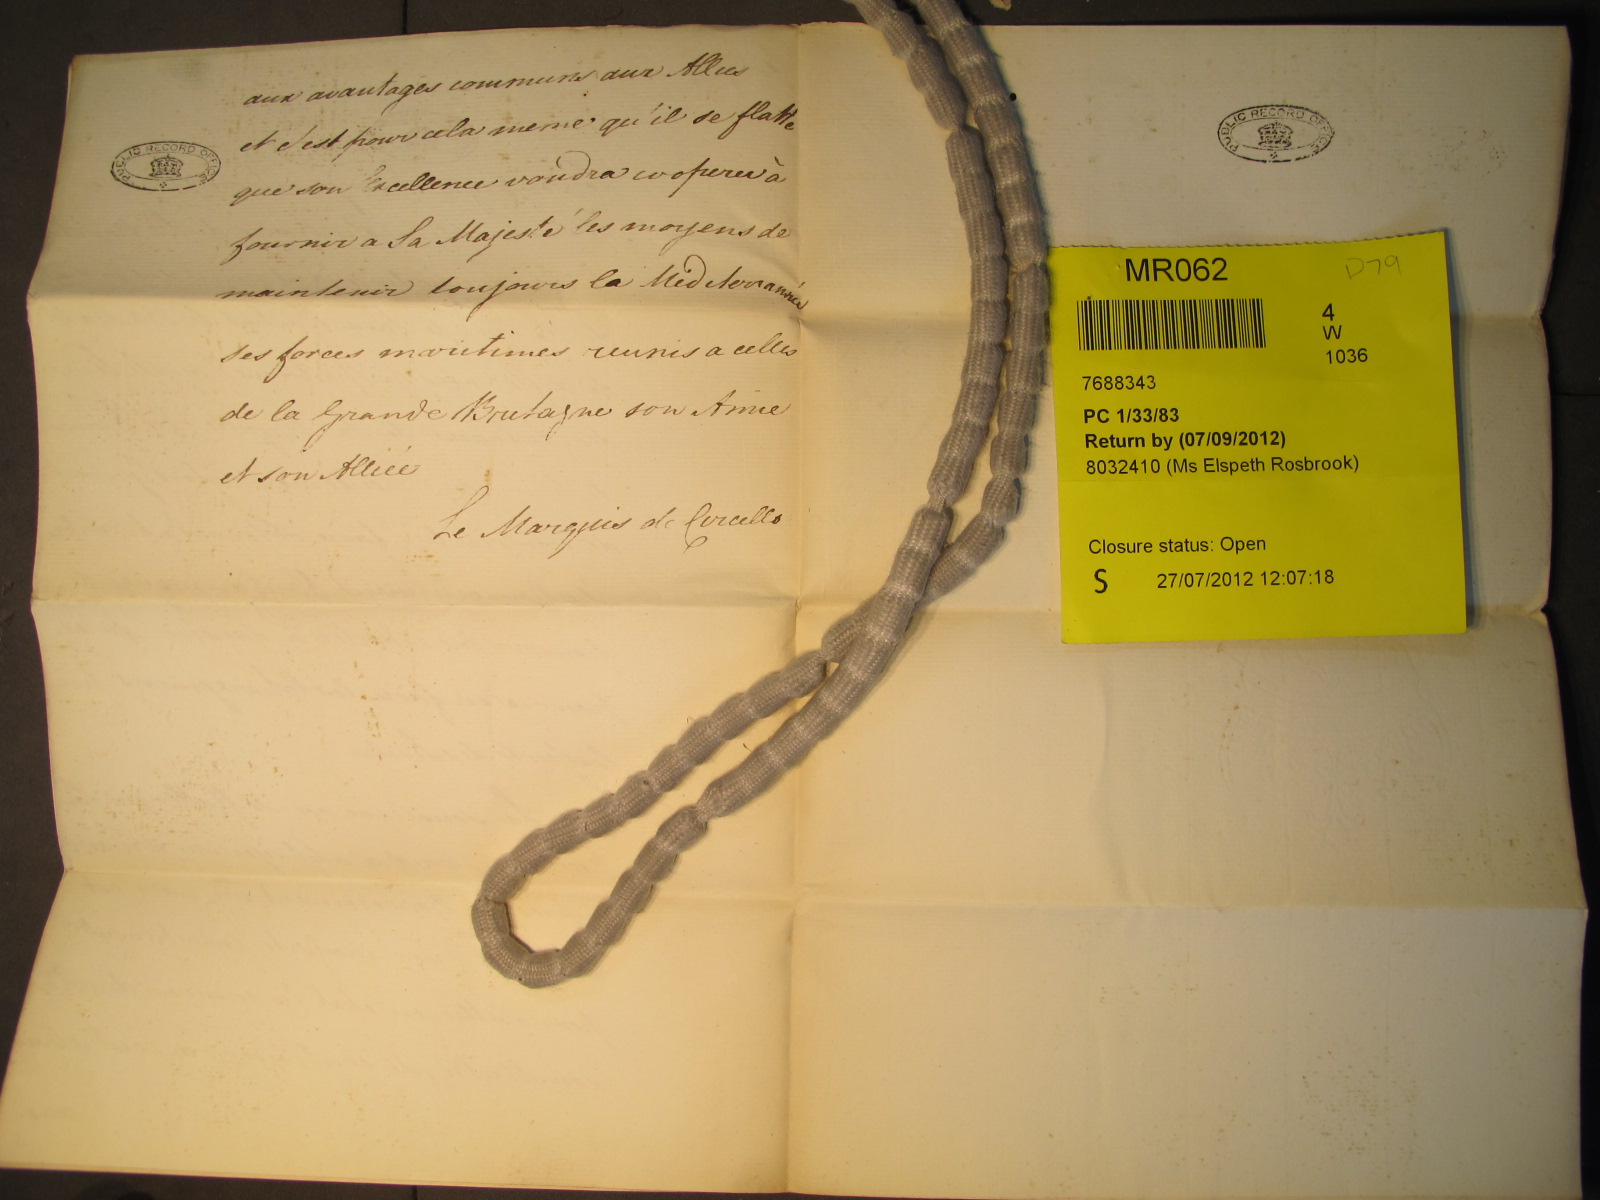 aux avantages communs aux Allies
et c'est pour cela meme qu'il se flatte
que son Excellence voudra cooperer à
fournir a Sa Majesté les moyens de
maintenir toujours la Mediterranée
ses forces maritimes reunis a celles
de la Grande Bretagne son Amie
et son Alliée
Le Marquis de Circello
PUBLIC RECORD OFFICE
PUBLIC RECORD OFFICE
MR062
D79
4
W
1036
7688343
PC 1/33/83
Return by (07/09/2012)
8032410 (Ms Elspeth Rosbrook)
Closure status: Open
S 27/07/2012 12:07:18